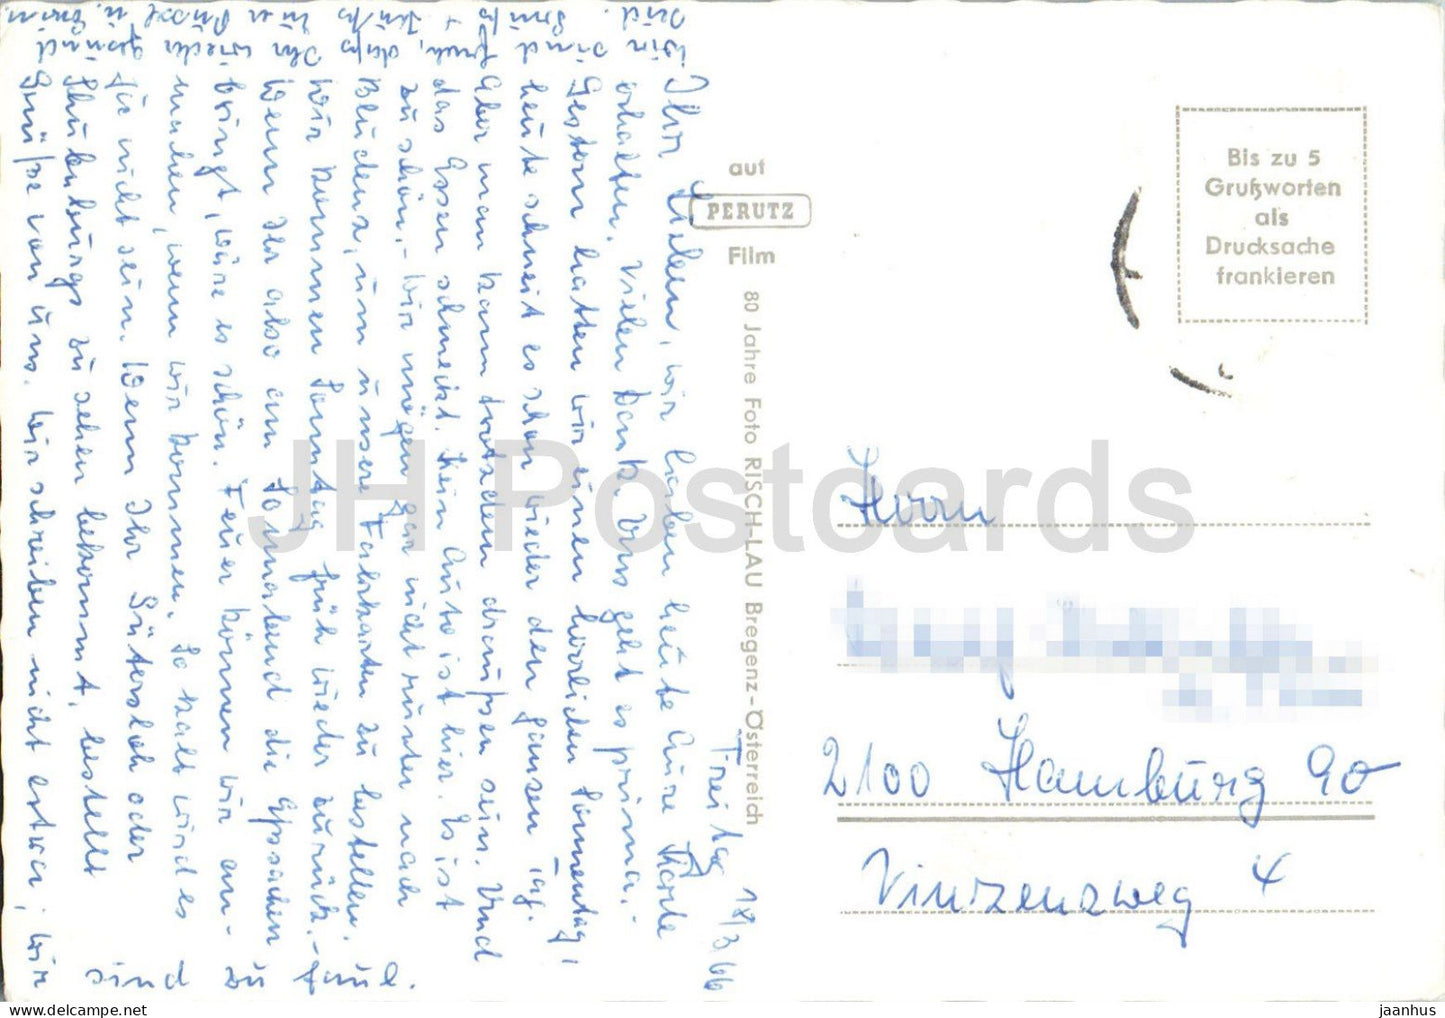 Freitag 18/3.66
Ihr Lieben, wir haben heute Eure Karte
erhalten. Vielen Dank. Uns geht es prima.-
Gestern hatten wir einen herrlichen Sonnentag,
heute schneit es schon wieder den ganzen Tag.
Aber man kann trotzdem draußen sein. Und
das Essen schmeckt. Kein Auto ist hier. Es ist
zu schön.- Wir mögen gar nicht runter nach
Bludenz, um unsere Fahrkarten zu bestellen.
Wir kommen Sonntag früh wieder zurück.-
Wenn Ihr also am Sonnabend die Esssachen
bringt, wäre es schön. Feuer können wir an-
machen, wenn wir kommen. So kalt wird es
ja nicht sein. Wenn Ihr Gütersloh oder
zu sehen bekommt, bestellt
Grüße von uns. Wir schreiben nicht extra, wir
sind zu faul.
Wir sind
auf
PERUTZ
Film
80 Jahre Foto RISCH-LAU Bregenz-Österreich
Bis zu 5
Grußworten
als
Drucksache
frankieren
Herrn
2100 Hamburg 90
Vinzenzweg 4
JH Postcards
https://www.jhpostcards.com
jaanhus